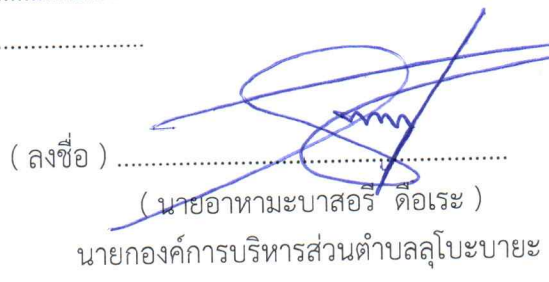 ( ลงชื่อ ) ............................................................
( นายอาหามะบาสอรี ดือเระ )
นายกองค์การบริหารส่วนตำบลลุโบะบายะ